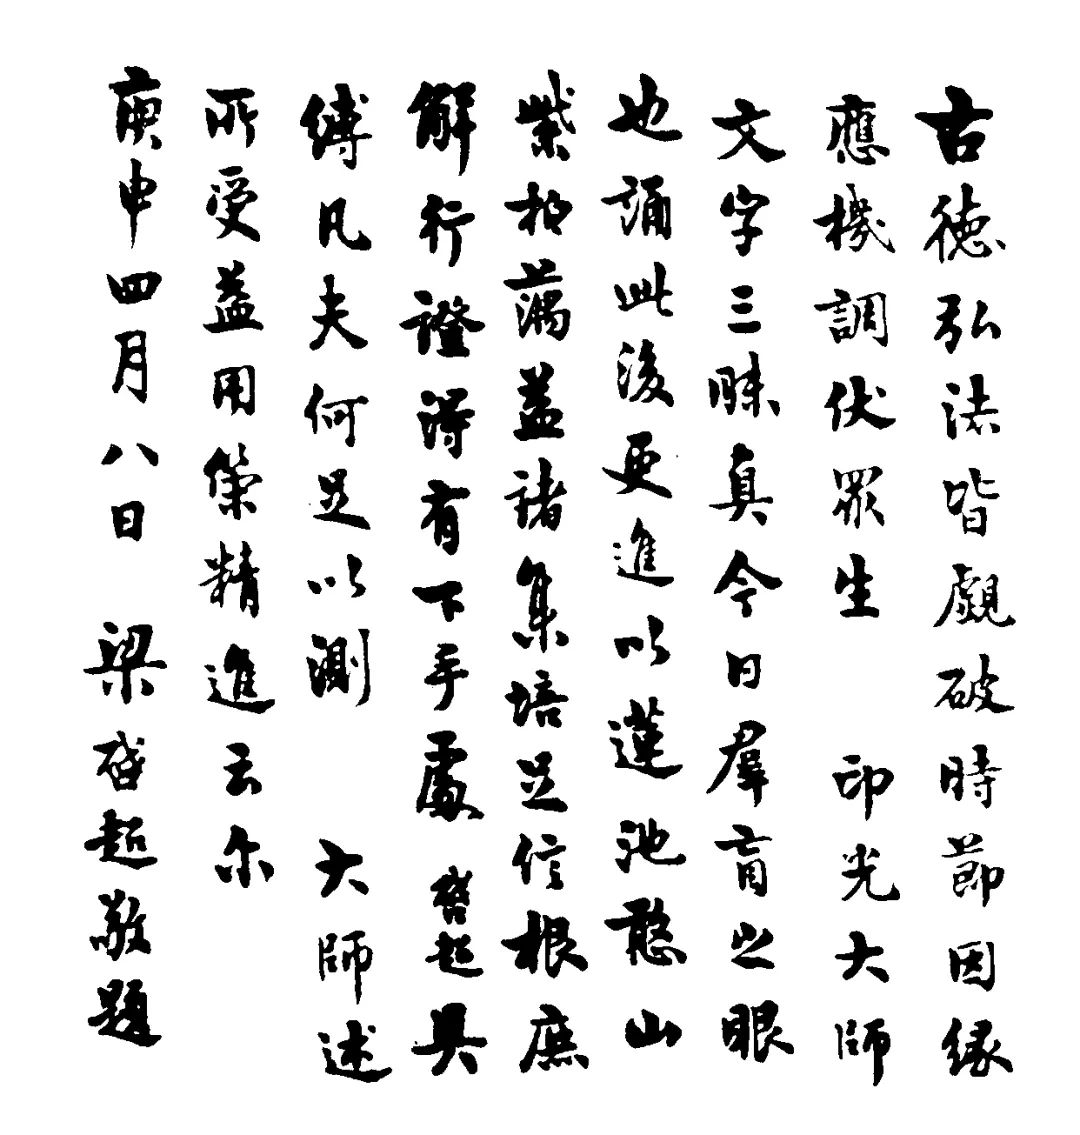 古德弘法皆覷破時節因緣
應機調伏眾生 印光大師
文字三昧真今日羣盲之眼
也誦此後更進以蓮池憨山
紫柏蕅益諸集培足信根庶
解行證得有下手處 啓超具
縛凡夫何足以測 大師述
所受益用策精進云尔
庚申四月八日 梁啓超敬題